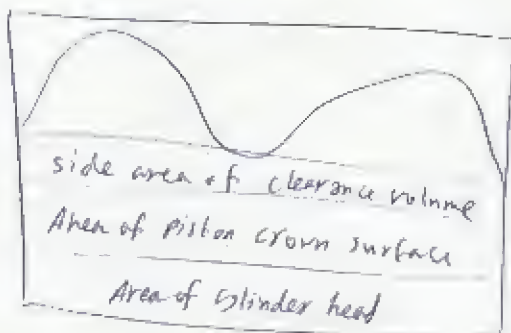 side area of clearance volume
Area of piston crown surface
Area of cylinder head